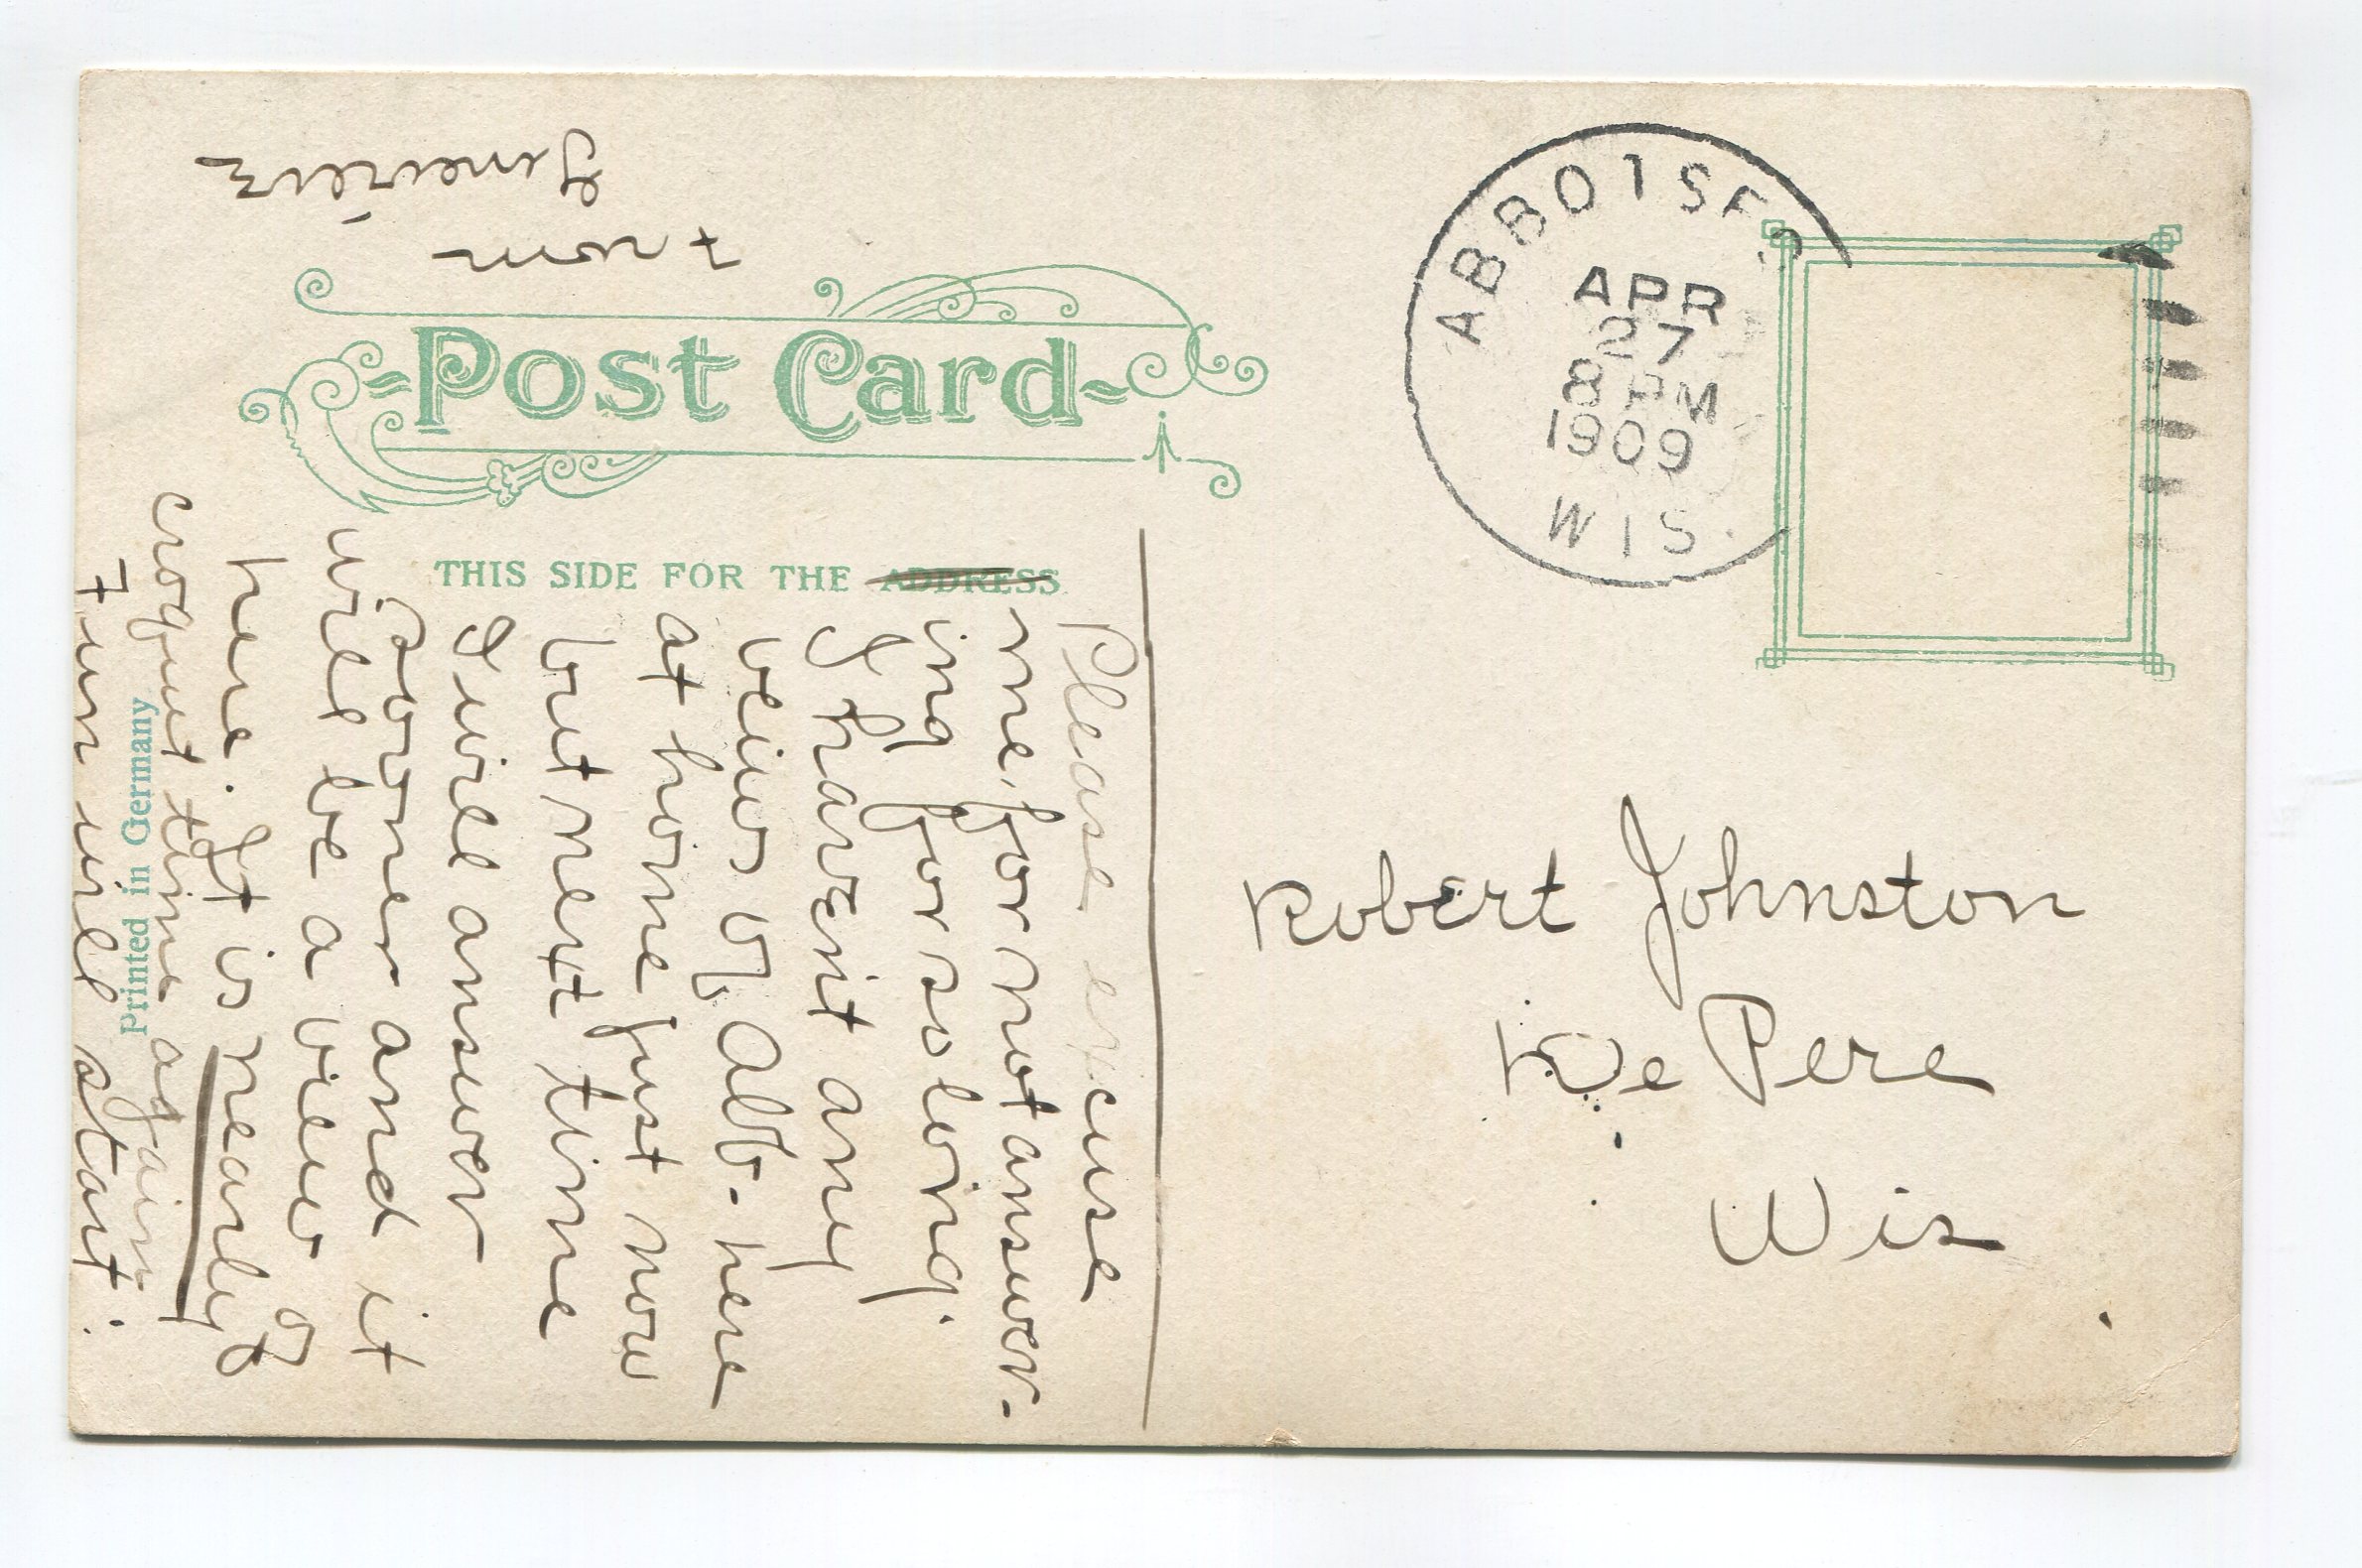 Post Card
THIS SIDE FOR THE ADDRESS
Printed in Germany
ABBOTSF
APR
27
8 PM
1909
WIS.
Robert Johnston
De Pere
Wis
Please excuse
me, for not answer-
ing for so long.
I havent any
veiws of Abb- here
at home just now
but next time
I will answer
sooner and it
will be a view of
here. It is nearly
croquet time again
Fun will start:
From
Genevieve